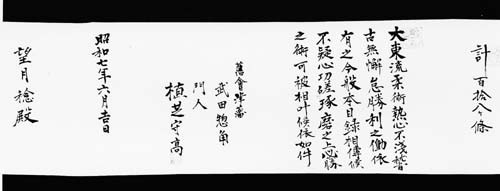 計百拾八ケ條
大東流柔術熱心不淺稽
古無懈怠勝利之働依
有之今般本目録相傳候
不疑心切磋琢磨之上必勝
之術可被相叶候依如件
舊會津藩
武田惣角
門人
植芝守高
昭和七年六月吉日
望月稔殿